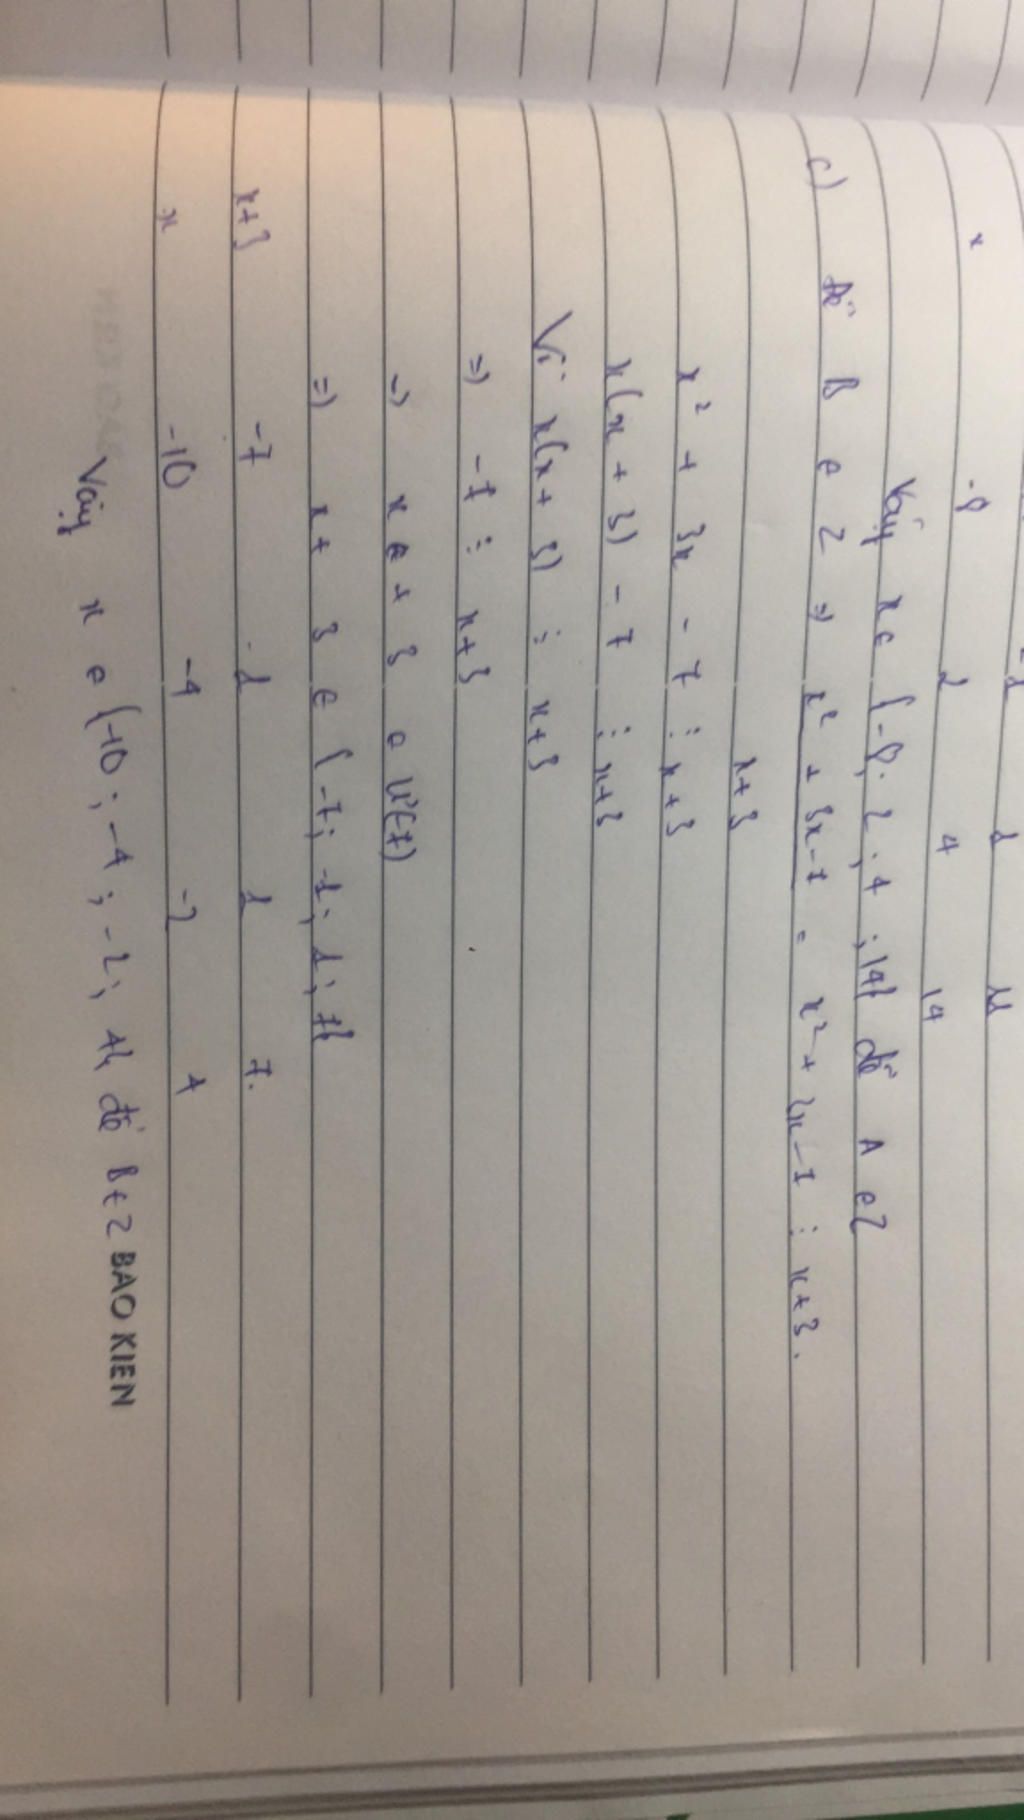 -1 1 11
x -8 2 4 14
Vậy x ∈ {-8; 2; 4; 14} để A ∈ Z
c) Để B ∈ Z => x² + 3x - 7 = x² + 3x - 7 ⋮ x+3.
x+3
x² + 3x - 7 ⋮ x+3
x(x + 3) - 7 ⋮ x+3
Vì x(x + 3) ⋮ x+3
=> -7 ⋮ x+3
=> x ∈ + 3 ∈ Ư(7)
=> x + 3 ∈ {-7; -1; 1; 7}
x+3 -7 -1 1 7.
x -10 -4 -2 4
Vậy x ∈ {-10; -4; -2; 4} để B ∈ Z
BAO KIEN